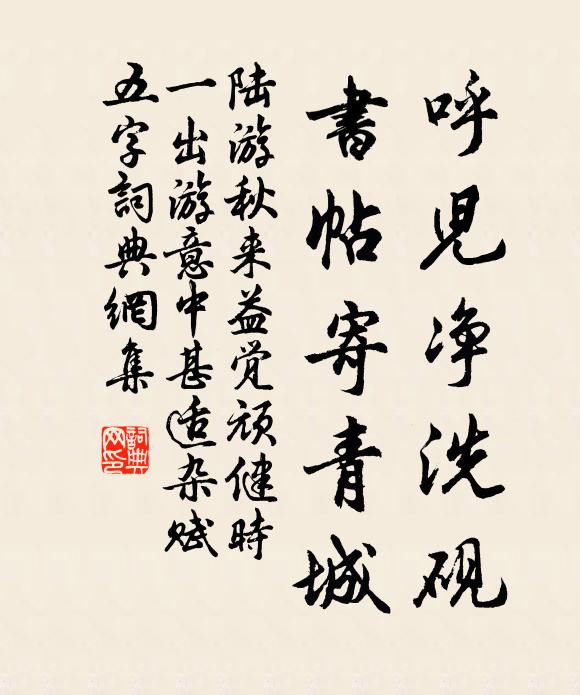 呼児净洗硯
書帖寄青城
陆游秋来益觉顽健時
一出游意中甚适杂赋
五字詞典網集
詞典网印